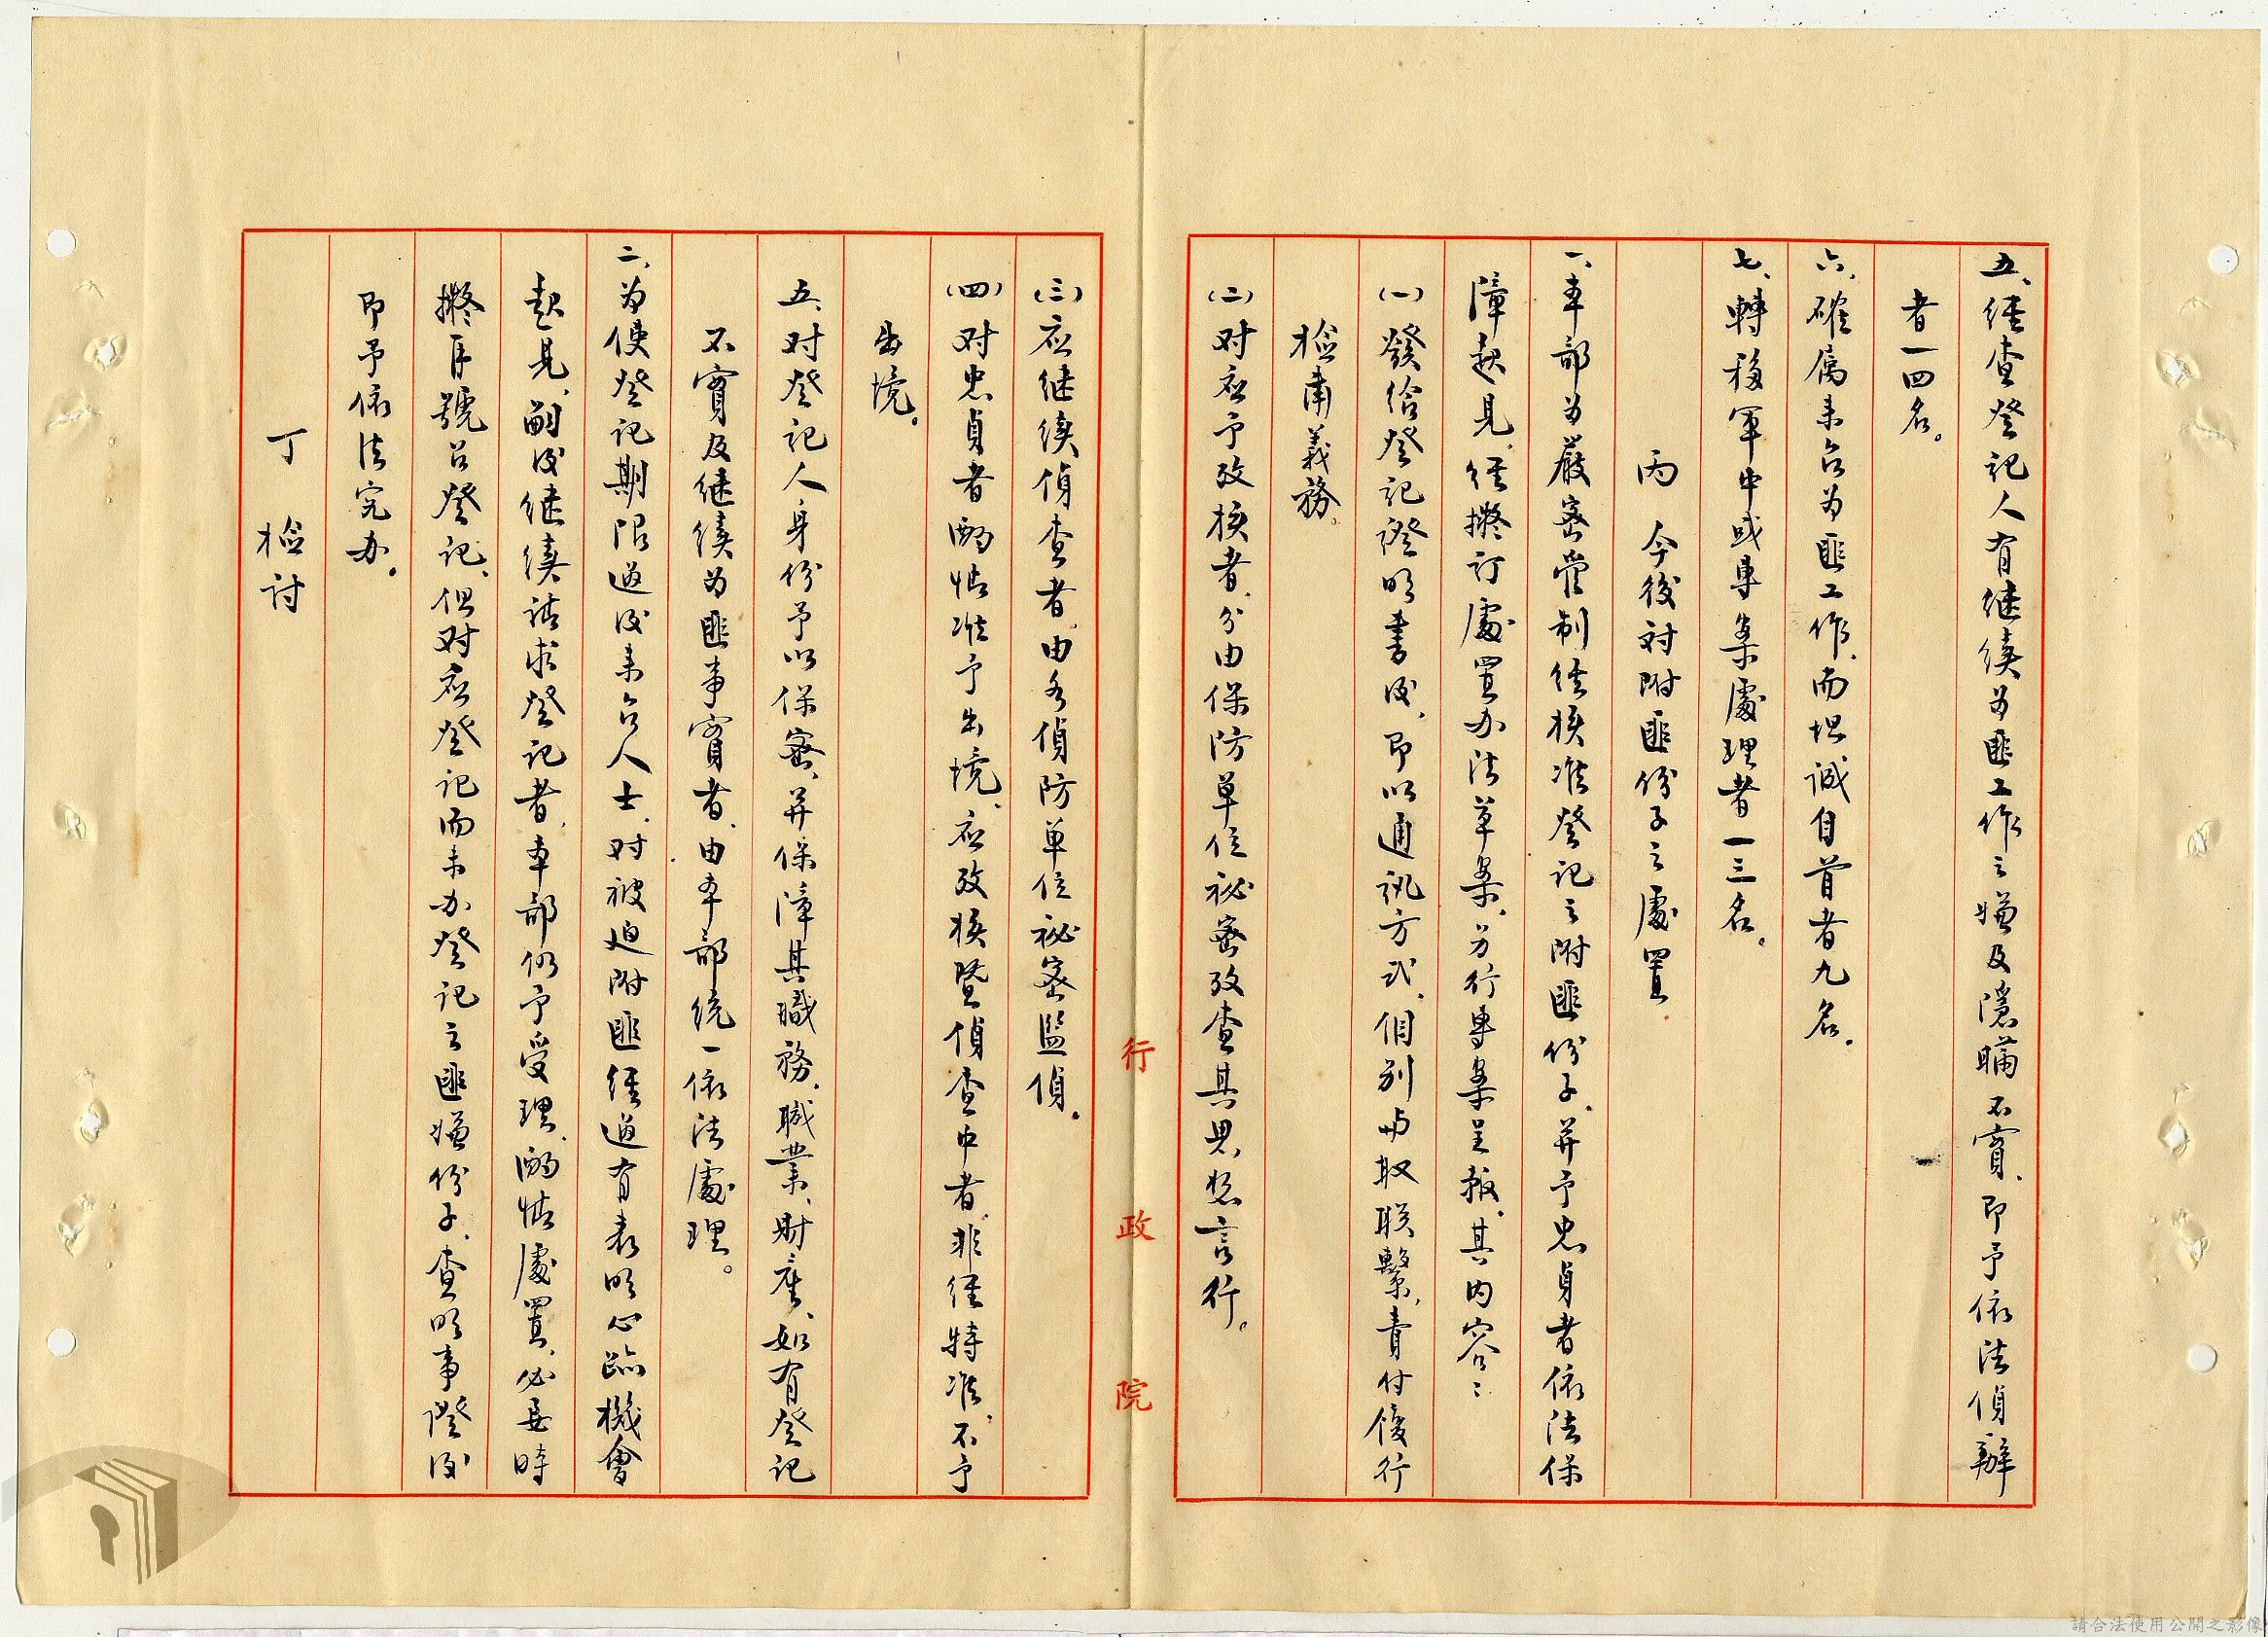 五、經查登记人有继续为匪工作之嫌及隱瞞不實、即予依法偵辦
者一四名。
六、確属未台为匪工作、而坦诚自首者九名。
七、轉移軍中或專案處理者一三名。
丙 今後対附匪份子之處置
一、本部为嚴密管制经核准登记之附匪份子、并予忠貞者依法保
障起見、经擬订處置办法草案、另行專案呈報、其内容：
(一)發给登记證明书後、即以通讯方式、個别与取联繫、責付履行
检肃義務。
(二)对应予考核者、分由保防单位祕密考查其思想言行。
(三)应继续偵查者、由各偵防单位祕密監偵。
(四)对忠貞者酌情准予出境、应考核暨偵查中者、非经特准、不予
出境。
五、对登记人身份予以保密、并保障其職務、職業、財產、如有登记
不實及继续为匪事實者、由本部统一依法處理。
二、为使登记期限過後来台人士、对被迫附匪经過有表明心跡機會
起見、嗣後继续請求登记者、本部仍予受理、酌情處置、必要時
擬再號召登记、但对应登记而未办登记之匪嫌份子、查明事證後
即予依法究办。
丁 检讨
行政院
請合法使用公開之影像